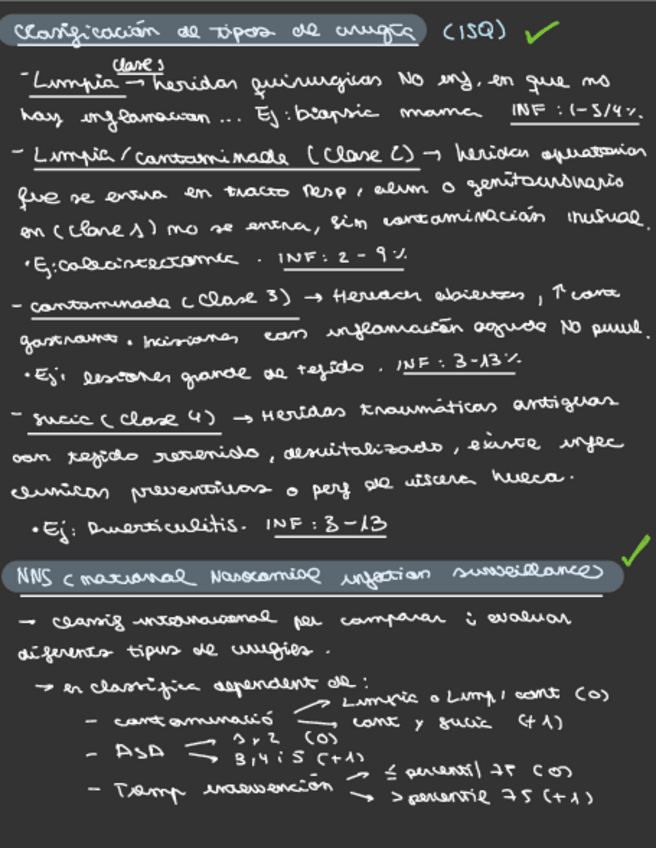 Clasificación de tipos de cirugía (ISQ)
clase 1
- Limpia → heridas quirurgicas NO inf, en que no
hay inflamacion ... Ej: biopsia mama INF: 1-5/4%.
- Limpia/contaminada (Clase 2) → heridas operatorias
que se entra en tracto resp, alim o genitourinario
en (clase 1) no se entra, sin contaminación inusual.
• Ej: colecistectomia. INF: 2-9%
- contaminada (Clase 3) → Heridas abiertas, ↑ cont
gastroint. Incisiones con inflamación aguda NO purul.
• Ej: lesiones grande de tejido. INF: 3-13%
- Sucia (Clase 4) → Heridas traumáticas antiguas
con tejido retenido, desvitalizado, existe infec
clinicas o perf de viscera hueca.
• Ej: Diverticulitis. INF: 3-13
NNS (National Nosocomial infection surveillance)
→ classif internacional per comparar i evaluar
diferents tipus de cirugies.
→ es classifica dependent de:
- contaminació → Limpia o Limp/cont (0)
→ cont y sucia (+1)
- ASA → 1 y 2 (0)
→ 3, 4 i 5 (+1)
- Temp intervención → ≤ percentil 75 (0)
→ > percentil 75 (+1)